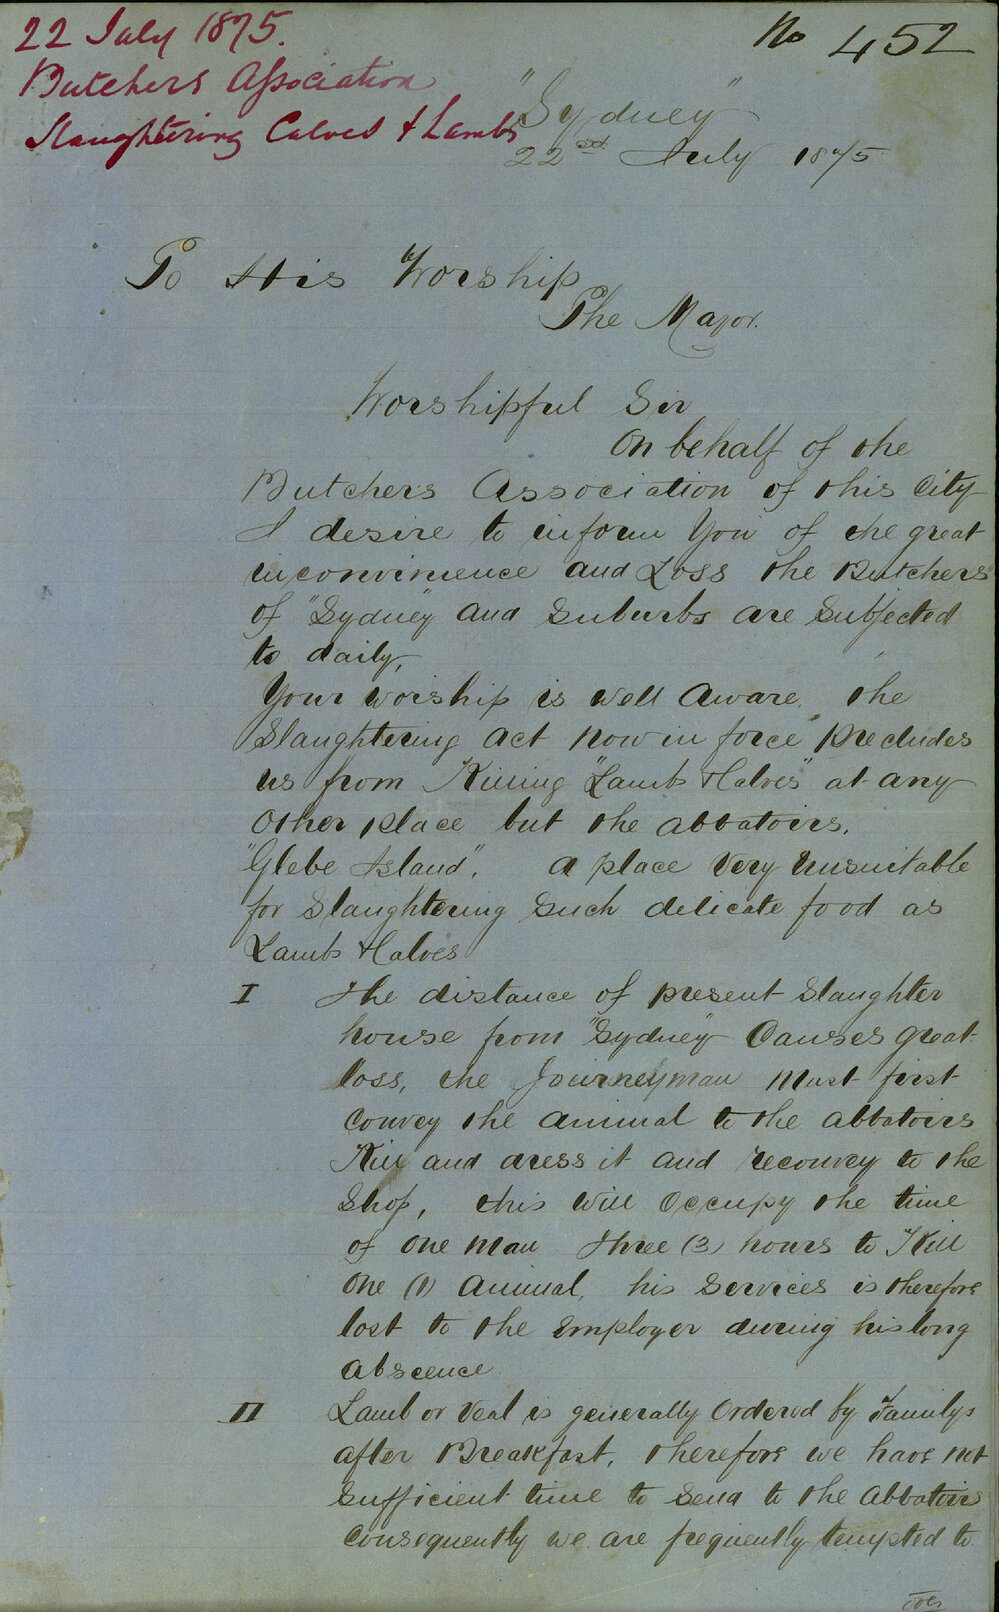 22 July 1875.
Butchers Association
Slaughtering Calves & Lambs
No 452
"Sydney"
22nd July 1875
To His Worship
The Mayor.
Worshipful Sir
On behalf of the
Butchers Association of this City
I desire to inform You of the great
inconvinience and Loss the Butchers
of "Sydney" and Suburbs are Subjected
to daily,
Your worship is well aware. the
Slaughtering act now in force precludes
us from Killing "Lamb & Calves" at any
Other place but the abbatoirs.
"Glebe Island", a place Very Unsuitable
for Slaughtering Such delicate food as
Lamb & Calves
I The distance of present Slaughter
house from "Sydney" Causes great
loss, the Journeyman Must first
Convey the animal to the abbatoirs
Kill and dress it and reconvey to the
Shop, this will Occupy the time
of One Man three (3) hours to Kill
One (1) animal, his Services is therefore
lost to the Employer during his long
abscence
II Lamb or Veal is generally Ordered by Familys
after Breakfast, therefore we have not
Sufficient time to Send to the abbatoirs
Consequently we are frequently tempted to
over